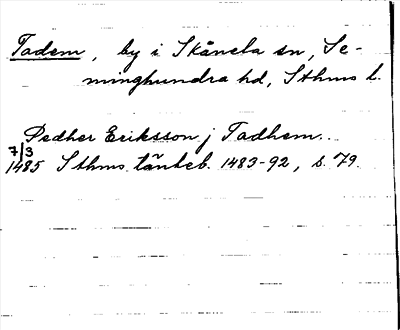 Tadem, by i Skånela sn, Se-
minghundra hd, Sthms l.
Pedher Eriksson j Tadhem.
7/3
1485 Sthms tänkeb. 1483-92, s. 79.